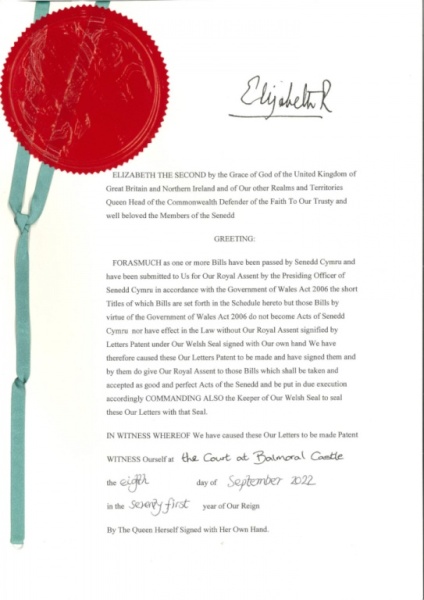 Elizabeth R
ELIZABETH THE SECOND by the Grace of God of the United Kingdom of
Great Britain and Northern Ireland and of Our other Realms and Territories
Queen Head of the Commonwealth Defender of the Faith To Our Trusty and
well beloved the Members of the Senedd
GREETING:
FORASMUCH as one or more Bills have been passed by Senedd Cymru and
have been submitted to Us for Our Royal Assent by the Presiding Officer of
Senedd Cymru in accordance with the Government of Wales Act 2006 the short
Titles of which Bills are set forth in the Schedule hereto but those Bills by
virtue of the Government of Wales Act 2006 do not become Acts of Senedd
Cymru nor have effect in the Law without Our Royal Assent signified by
Letters Patent under Our Welsh Seal signed with Our own hand We have
therefore caused these Our Letters Patent to be made and have signed them and
by them do give Our Royal Assent to those Bills which shall be taken and
accepted as good and perfect Acts of the Senedd and be put in due execution
accordingly COMMANDING ALSO the Keeper of Our Welsh Seal to seal
these Our Letters with that Seal.
IN WITNESS WHEREOF We have caused these Our Letters to be made Patent
WITNESS Ourself at the Court at Balmoral Castle
the eighth day of September 2022
in the seventy first year of Our Reign
By The Queen Herself Signed with Her Own Hand.